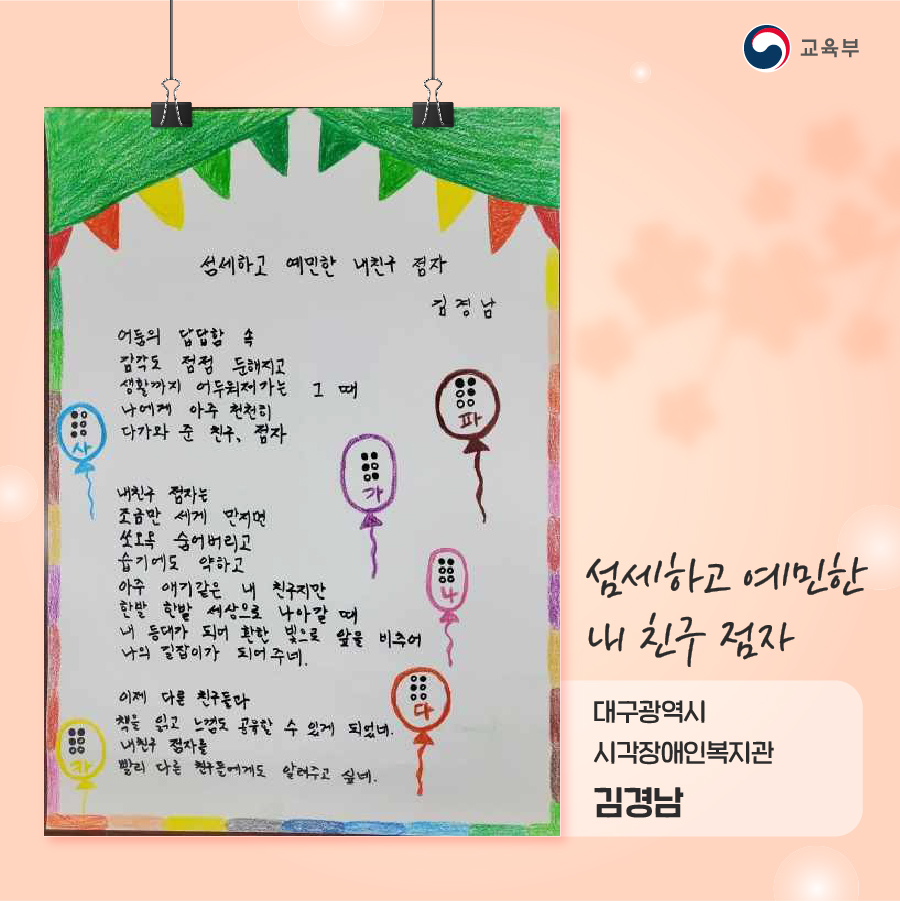 교육부
섬세하고 예민한 내친구 점자
김경남
어둠의 답답함 속
감각도 점점 둔해지고
생활까지 어두워져가는 그 때
나에게 아주 천천히
다가와 준 친구, 점자
내친구 점자는
조금만 세게 만지면
쏘오옥 숨어버리고
습기에도 약하고
아주 애기같은 내 친구지만
한발 한발 세상으로 나아갈 때
내 등대가 되어 환한 빛으로 앞을 비추어
나의 길잡이가 되어주네.
이제 다른 친구들과
책을 읽고 느낌도 공유할 수 있게 되었네.
내친구 점자를
빨리 다른 친구들에게도 알려주고 싶네.
사
가
파
나
다
카
섬세하고 예민한
내 친구 점자
대구광역시
시각장애인복지관
김경남